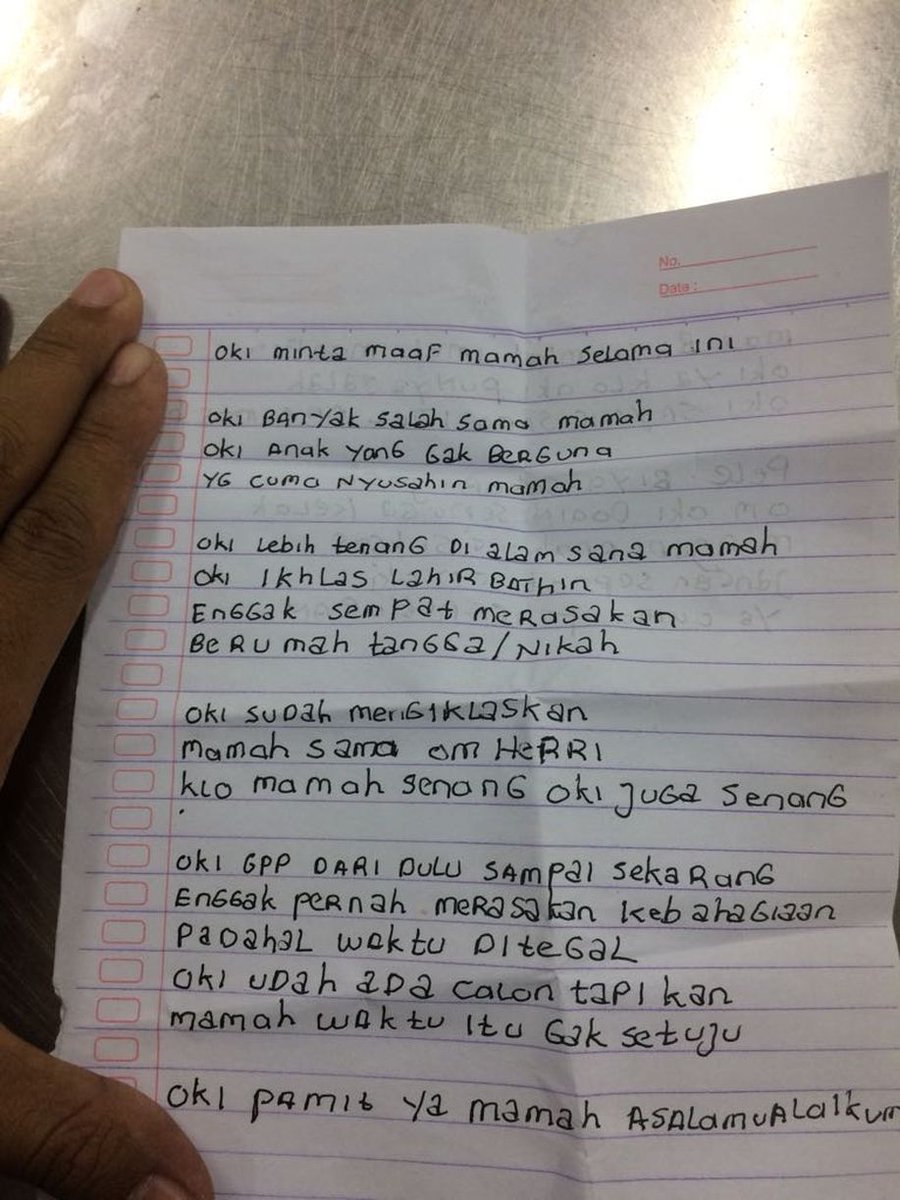 No.
Date :
OKI minta maaf mamah selama ini
OKI BANYak salah sama mamah
OKI Anak YANG Gak BERGUNA
YG cuma NYUSahin mamah
OKI Lebih tenanG DI alam sana mamah
OKI IKhLAS LahIR BAThin
EnGGak sempat meRASakan
BeRUmah tanGGa/NIKah
OKI SUDah menGIKLaSKan
mamah sama om HeRRI
KLO mamah senanG OKI JUGa senanG
OKI GPP DARI DULU SAmpaI SekaRanG
EnGGak peRnah meRASakan KebahaGIaan
PaDahaL waktu DITeGaL
OKI UDah aDa caLon tapI kan
mamah waktu Itu Gak setuJU
OKI PAmit Ya mamah ASALamUALaIkum